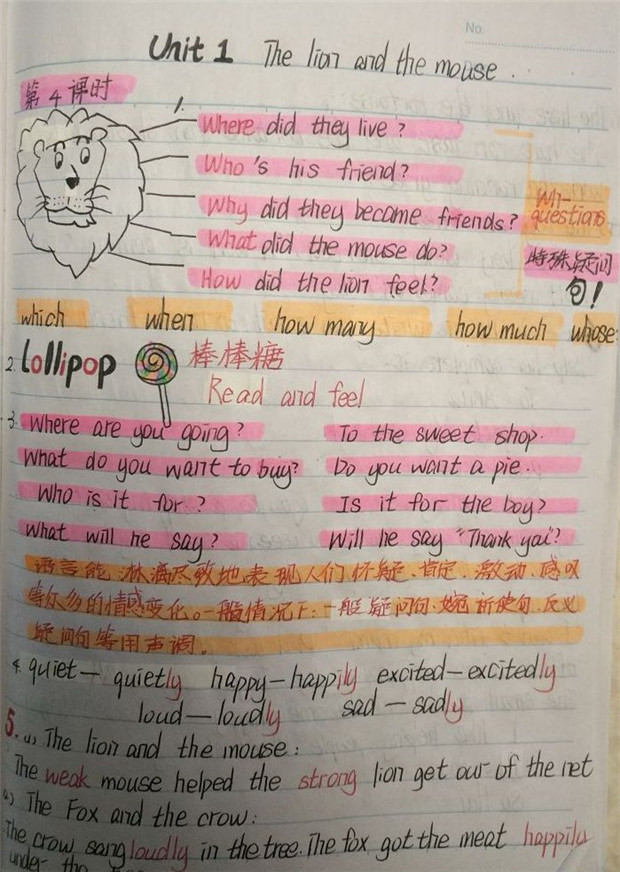 No.
Unit 1 The lion and the mouse.
第4课时
1.
Where did they live?
Who's his friend?
Why did they become friends?
What did the mouse do?
How did the lion feel?
Wh-questions
特殊疑问句!
which when how many how much whose
2. Lollipop 棒棒糖
Read and feel
3. Where are you going? To the sweet shop.
What do you want to buy? Do you want a pie.
Who is it for? Is it for the boy?
What will he say? Will he say "Thank you"?
语言能淋漓尽致地表现人们怀疑、肯定、激动、感叹
等众多的情感变化。一般情况下:一般疑问句、婉祈使句、反义
疑问句等用声调。
4. quiet—quietly happy—happily excited—excitedly
loud—loudly sad—sadly
5. (1) The lion and the mouse:
The weak mouse helped the strong lion get our of the net
The Fox and the crow:
The crow sang loudly in the tree. The fox got the meat happily
under the